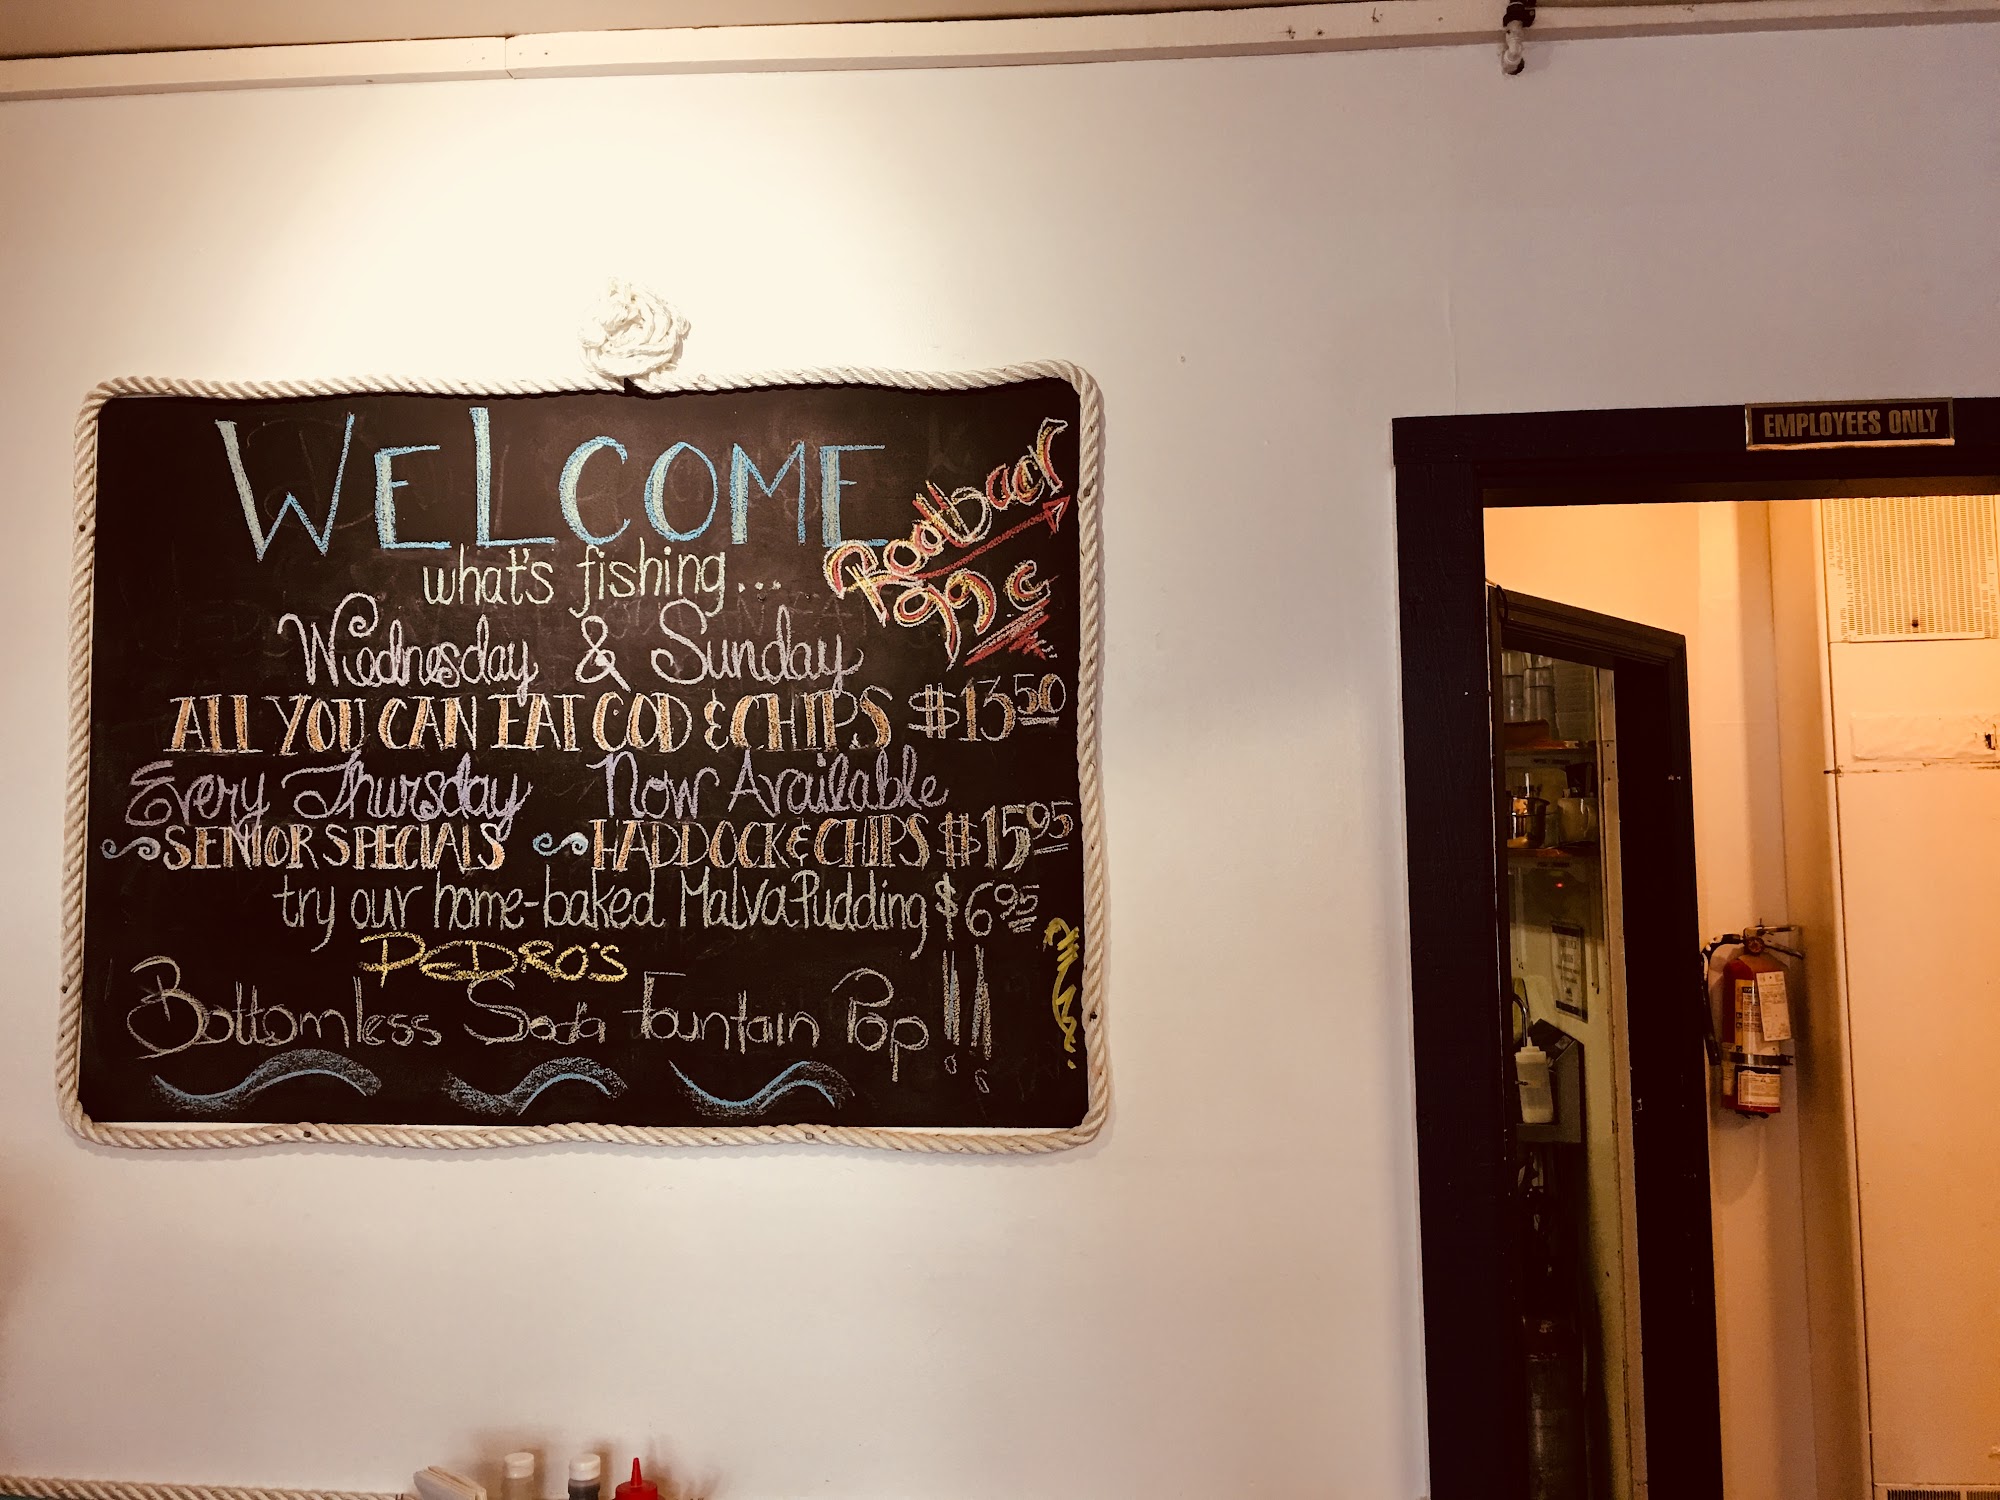 WELCOME
what's fishing...
Rootbaer
99¢
Wednesday & Sunday
ALL YOU CAN EAT COD & CHIPS $13.50
Every Thursday Now Available
SENIOR SPECIALS HADDOCK & CHIPS $15.95
try our home-baked Malva Pudding $6.95
PEDRO'S
Bottomless Soda Fountain Pop!!
EMPLOYEES ONLY